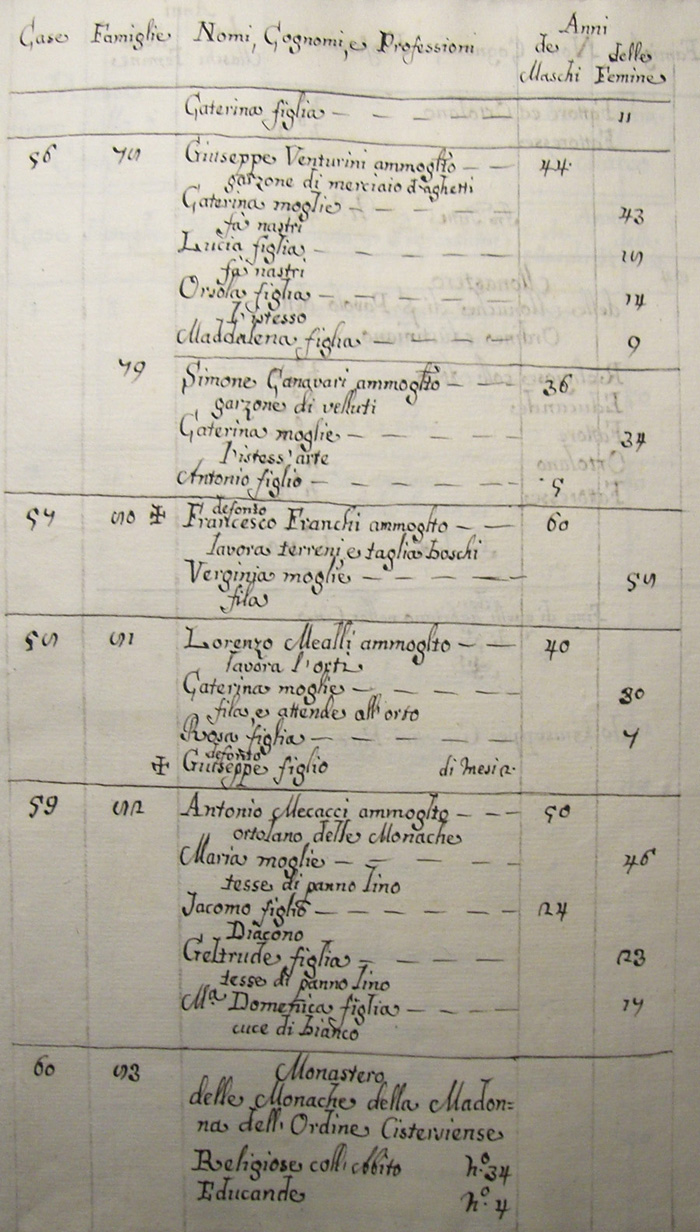 Case Famiglie Nomi, Cognomi, e Professioni Anni
de Maschi delle Femine
Caterina figlia 11
56 78 Giuseppe Venturini ammogl:to 44
garzone di merciaio d'aghetti
Caterina moglie 43
fà nastri
Lucia figlia 18
fà nastri
Orsola figlia 14
l'istesso
Maddalena figlia 9
79 Simone Canavari ammogl:to 36
garzone di velluti
Caterina moglie 34
l'istess'arte
Antonio figlio 5
defonto
57 80 ✠ Francesco Franchi ammoglto 60
lavora terreni, e taglia boschi
Verginia moglie 58
fila
58 81 Lorenzo Mealli ammoglto 40
lavora l'orti
Caterina moglie 30
fila, e attende all'orto
Rosa figlia 7
defonto
✠ Giuseppe figlio di mesi 2
59 82 Antonio Mecacci ammoglto 50
ortolano delle Monache
Maria moglie 46
tesse di panno lino
Jacomo figlio 24
Diacono
Geltrude figlia 23
tesse di panno lino
M.a Domenica figlia 17
cuce di bianco
60 83 Monastero
delle Monache della Madon=
na dell'Ordine Cisterviense
Religiose coll'Abito n.o 34
Educande n.o 4